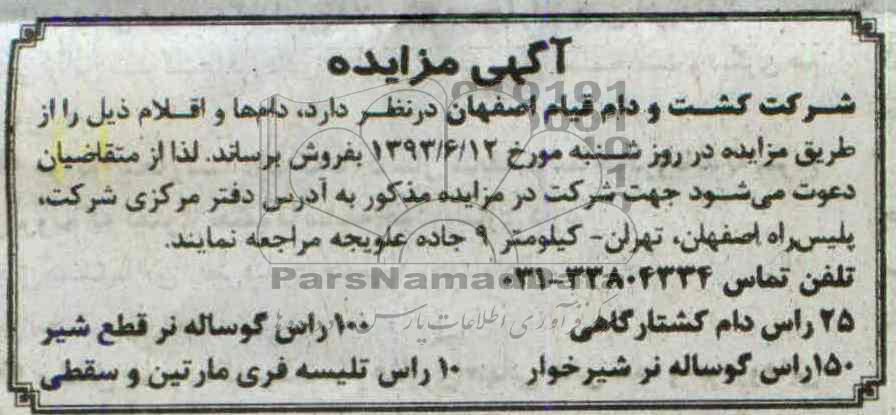 آگهی مزایده
شرکت کشت و دام قیام اصفهان درنظر دارد، دامها و اقلام ذیل را از
طریق مزایده در روز شنبه مورخ ۱۳۹۳/۶/۱۲ بفروش برساند. لذا از متقاضیان
دعوت می‌شود جهت شرکت در مزایده مذکور به آدرس دفتر مرکزی شرکت،
پلیس‌راه اصفهان، تهران- کیلومتر ۹ جاده علویجه مراجعه نمایند.
ParsNamadData
تلفن تماس ۳۳۸۰۴۳۳۴-۰۳۱
فرآوری اطلاعات پارس
۲۵ راس دام کشتارگاهی ۱۰۰ راس گوساله نر قطع شیر
۱۵۰راس گوساله نر شیرخوار ۱۰ راس تلیسه فری مارتین و سقطی